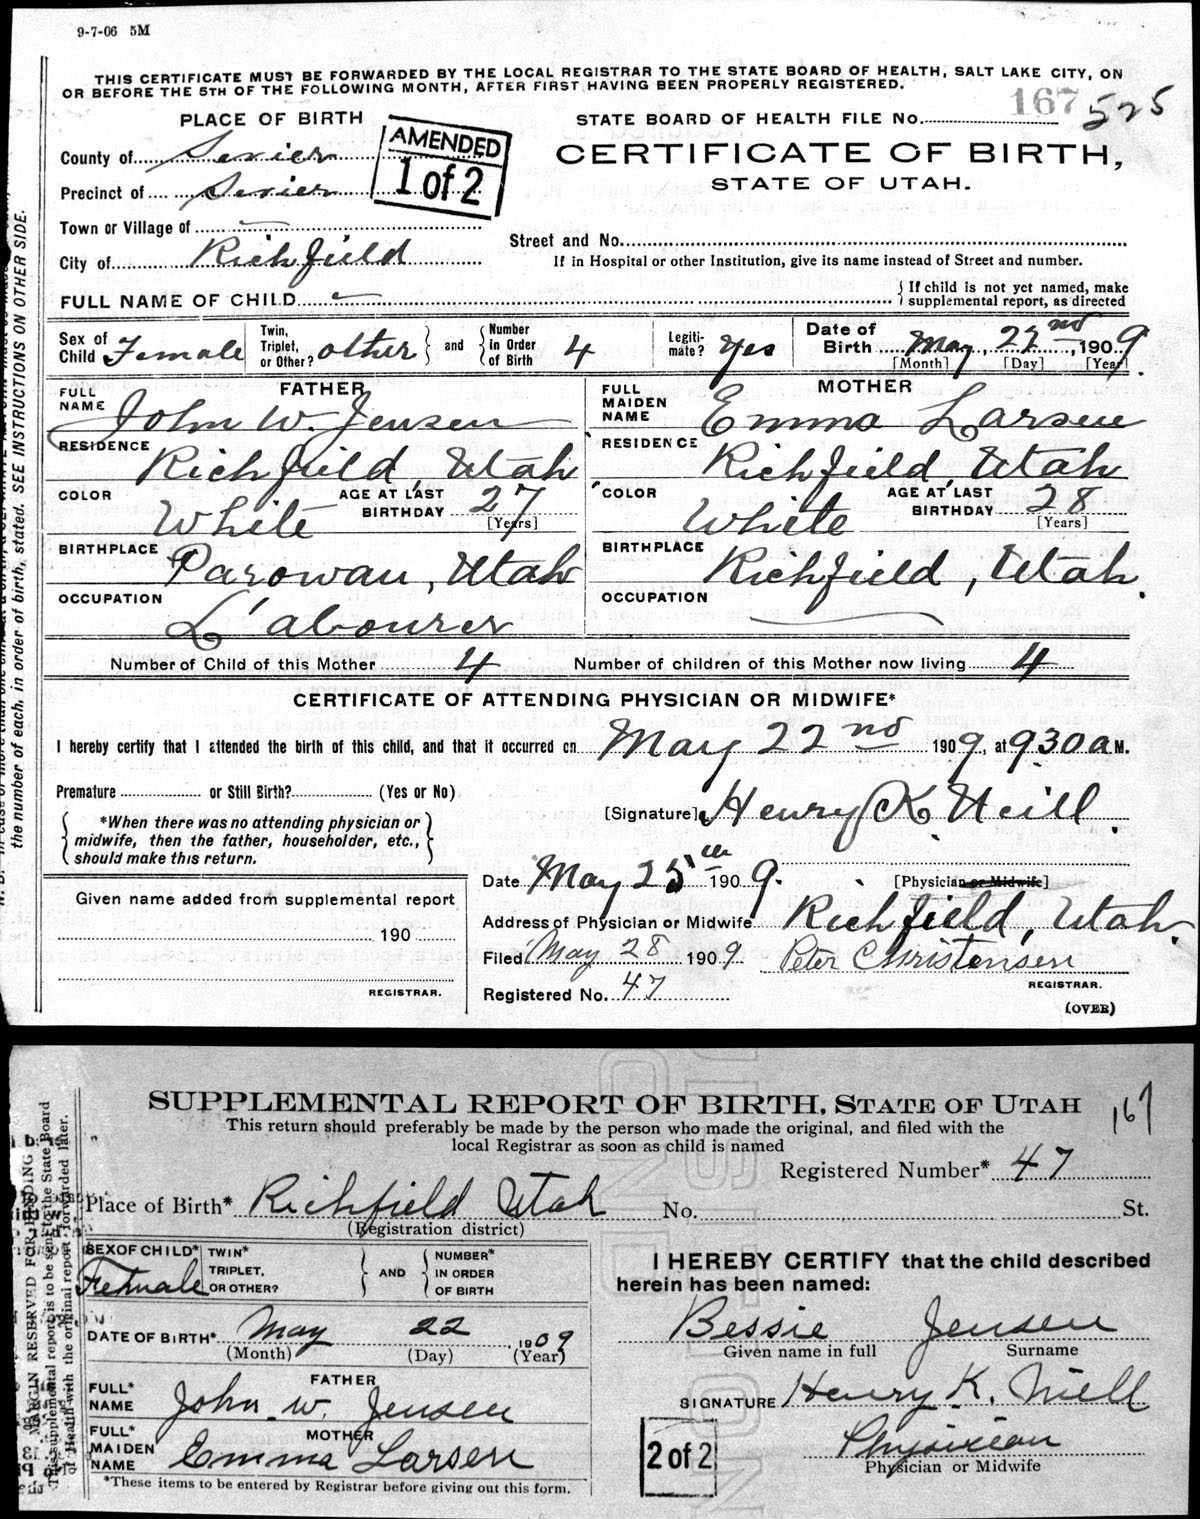 9-7-06 5M
THIS CERTIFICATE MUST BE FORWARDED BY THE LOCAL REGISTRAR TO THE STATE BOARD OF HEALTH, SALT LAKE CITY, ON
OR BEFORE THE 5TH OF THE FOLLOWING MONTH, AFTER FIRST HAVING BEEN PROPERLY REGISTERED.
STATE BOARD OF HEALTH FILE NO. 167 525
PLACE OF BIRTH
AMENDED
1 of 2
CERTIFICATE OF BIRTH,
STATE OF UTAH.
County of Sevier
Precinct of Sevier
Town or Village of
City of Richfield
Street and No.
If in Hospital or other Institution, give its name instead of Street and number.
FULL NAME OF CHILD
If child is not yet named, make
supplemental report, as directed
Sex of Child Female
Twin, Triplet, or Other? other and Number in Order of Birth 4
Legiti- mate? Yes
Date of Birth May, 22nd, 1909.
[Month] [Day] [Year]
FATHER
FULL NAME John W. Jensen
RESIDENCE Richfield, Utah
COLOR White AGE AT LAST BIRTHDAY 27
[Years]
BIRTHPLACE Parowan, Utah
OCCUPATION Labourer
MOTHER
FULL MAIDEN NAME Emma Larsen
RESIDENCE Richfield, Utah
COLOR White AGE AT LAST BIRTHDAY 28
[Years]
BIRTHPLACE Richfield, Utah.
OCCUPATION
Number of Child of this Mother 4 Number of children of this Mother now living 4
CERTIFICATE OF ATTENDING PHYSICIAN OR MIDWIFE*
I hereby certify that I attended the birth of this child, and that it occurred on May 22nd 1909, at 930 a M.
Premature or Still Birth? (Yes or No)
*When there was no attending physician or
midwife, then the father, householder, etc.,
should make this return.
[Signature] Henry K Neill.
Date May 25th 1909.
[Physician or Midwife]
Address of Physician or Midwife Richfield, Utah.
Filed May 28 1909 Peter Christensen
REGISTRAR.
Registered No. 47
(OVER)
Given name added from supplemental report
190
REGISTRAR.
the number of each, in order of birth, stated. SEE INSTRUCTIONS ON OTHER SIDE.
SUPPLEMENTAL REPORT OF BIRTH, STATE OF UTAH
167
This return should preferably be made by the person who made the original, and filed with the
local Registrar as soon as child is named
Registered Number* 47
Place of Birth* Richfield Utah No. St.
(Registration district)
SEX OF CHILD* Female
TWIN* TRIPLET, OR OTHER? AND NUMBER* IN ORDER OF BIRTH
DATE OF BIRTH* May 22 1909
(Month) (Day) (Year)
FATHER
FULL* NAME John W. Jensen
MOTHER
FULL* MAIDEN NAME Emma Larsen
*These items to be entered by Registrar before giving out this form.
I HEREBY CERTIFY that the child described
herein has been named:
Bessie Jensen
Given name in full Surname
SIGNATURE Henry K. Niell
2 of 2
Physician
Physician or Midwife
MARGIN RESERVED FOR BINDING
This supplemental report is to be sent to the State Board
of Health with the original report forwarded later.